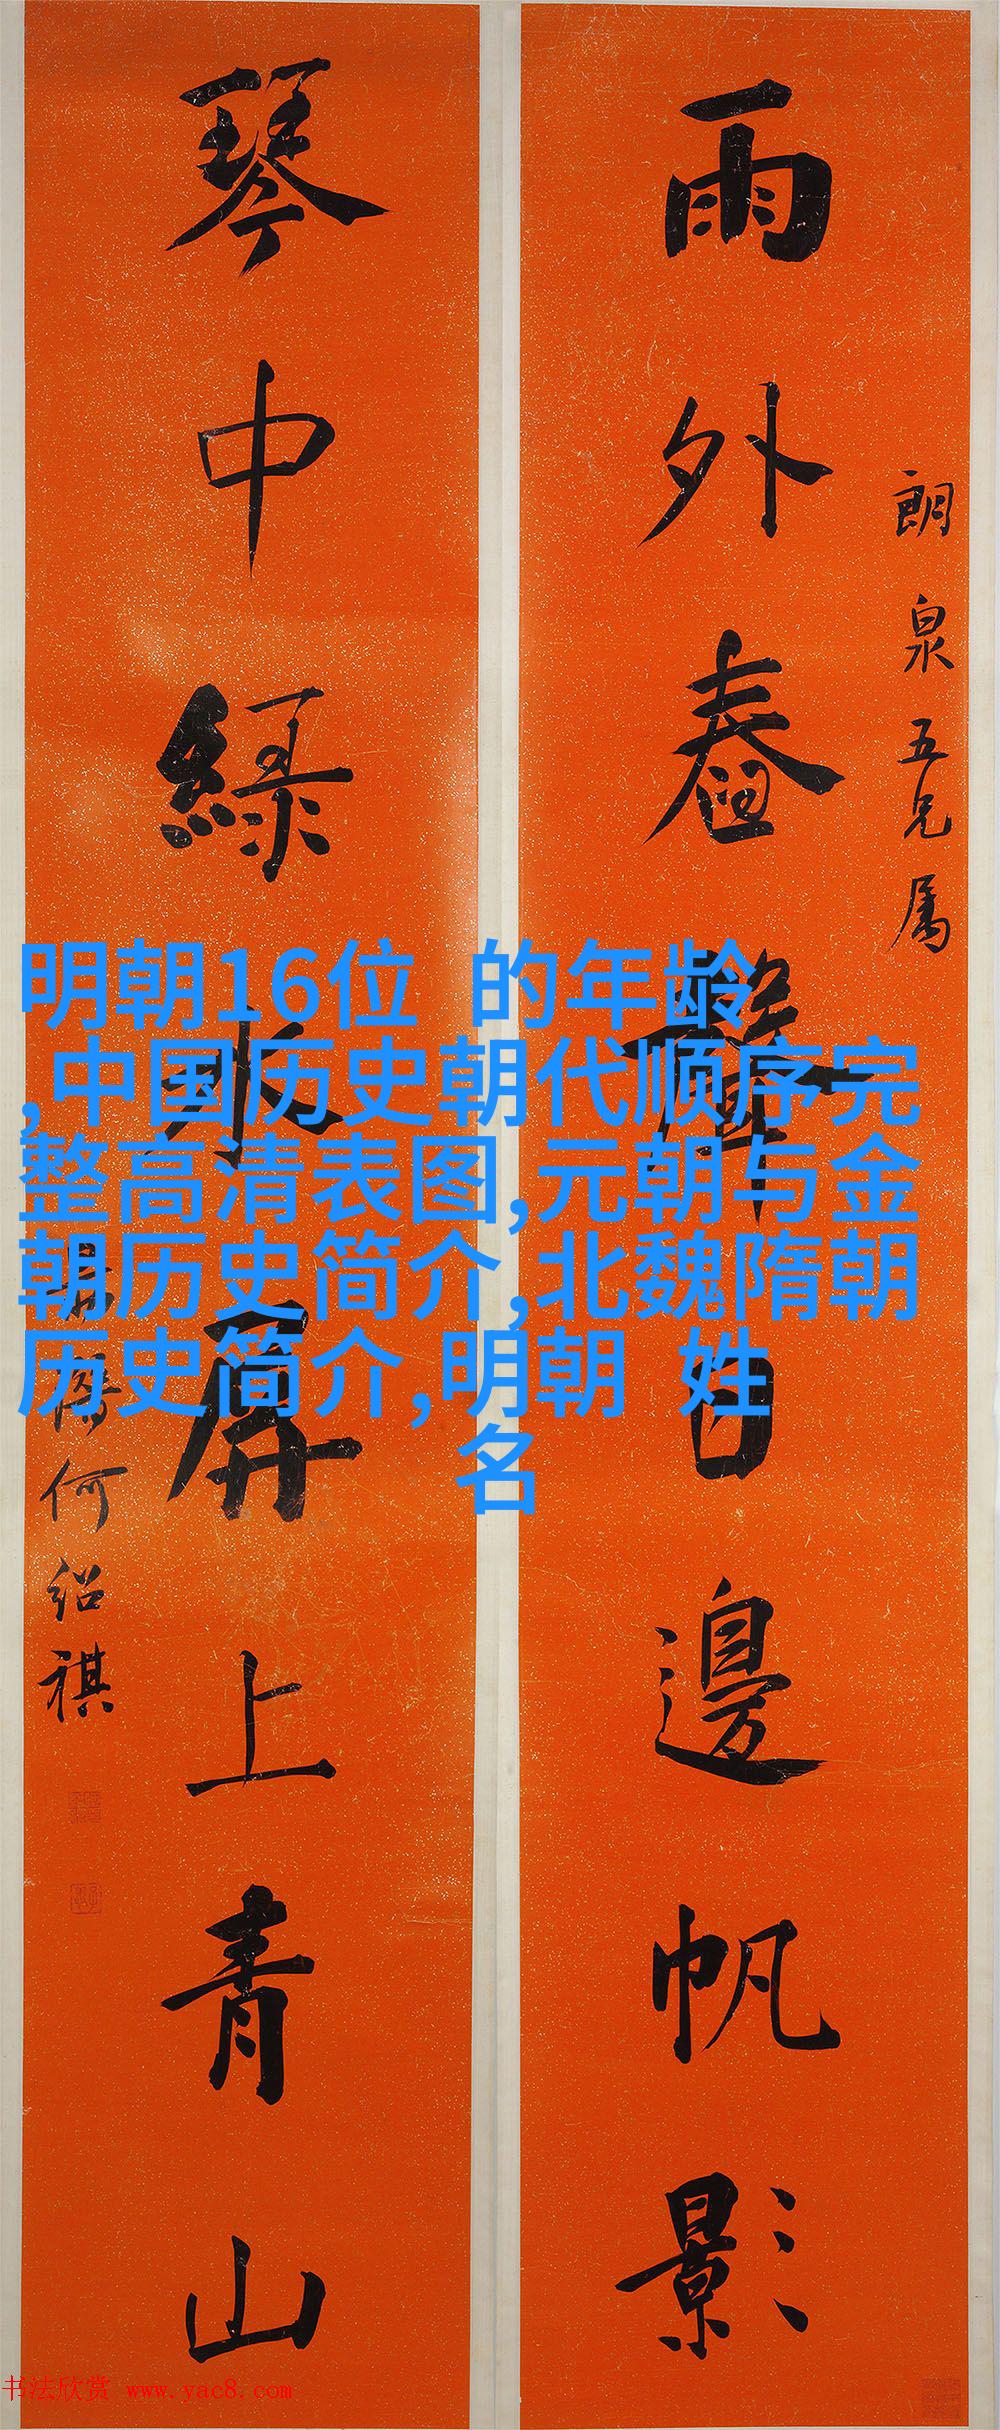 朗泉五兄属
雨外舂聲日邊帆影
琴中綠水屏上青山
何紹祺
明朝16位 的年龄
,中国历史朝代顺序完
整高清表图,元朝与金
朝历史简介,北魏隋朝
历史简介,明朝 姓
名
书法欣赏 www.yac8.com